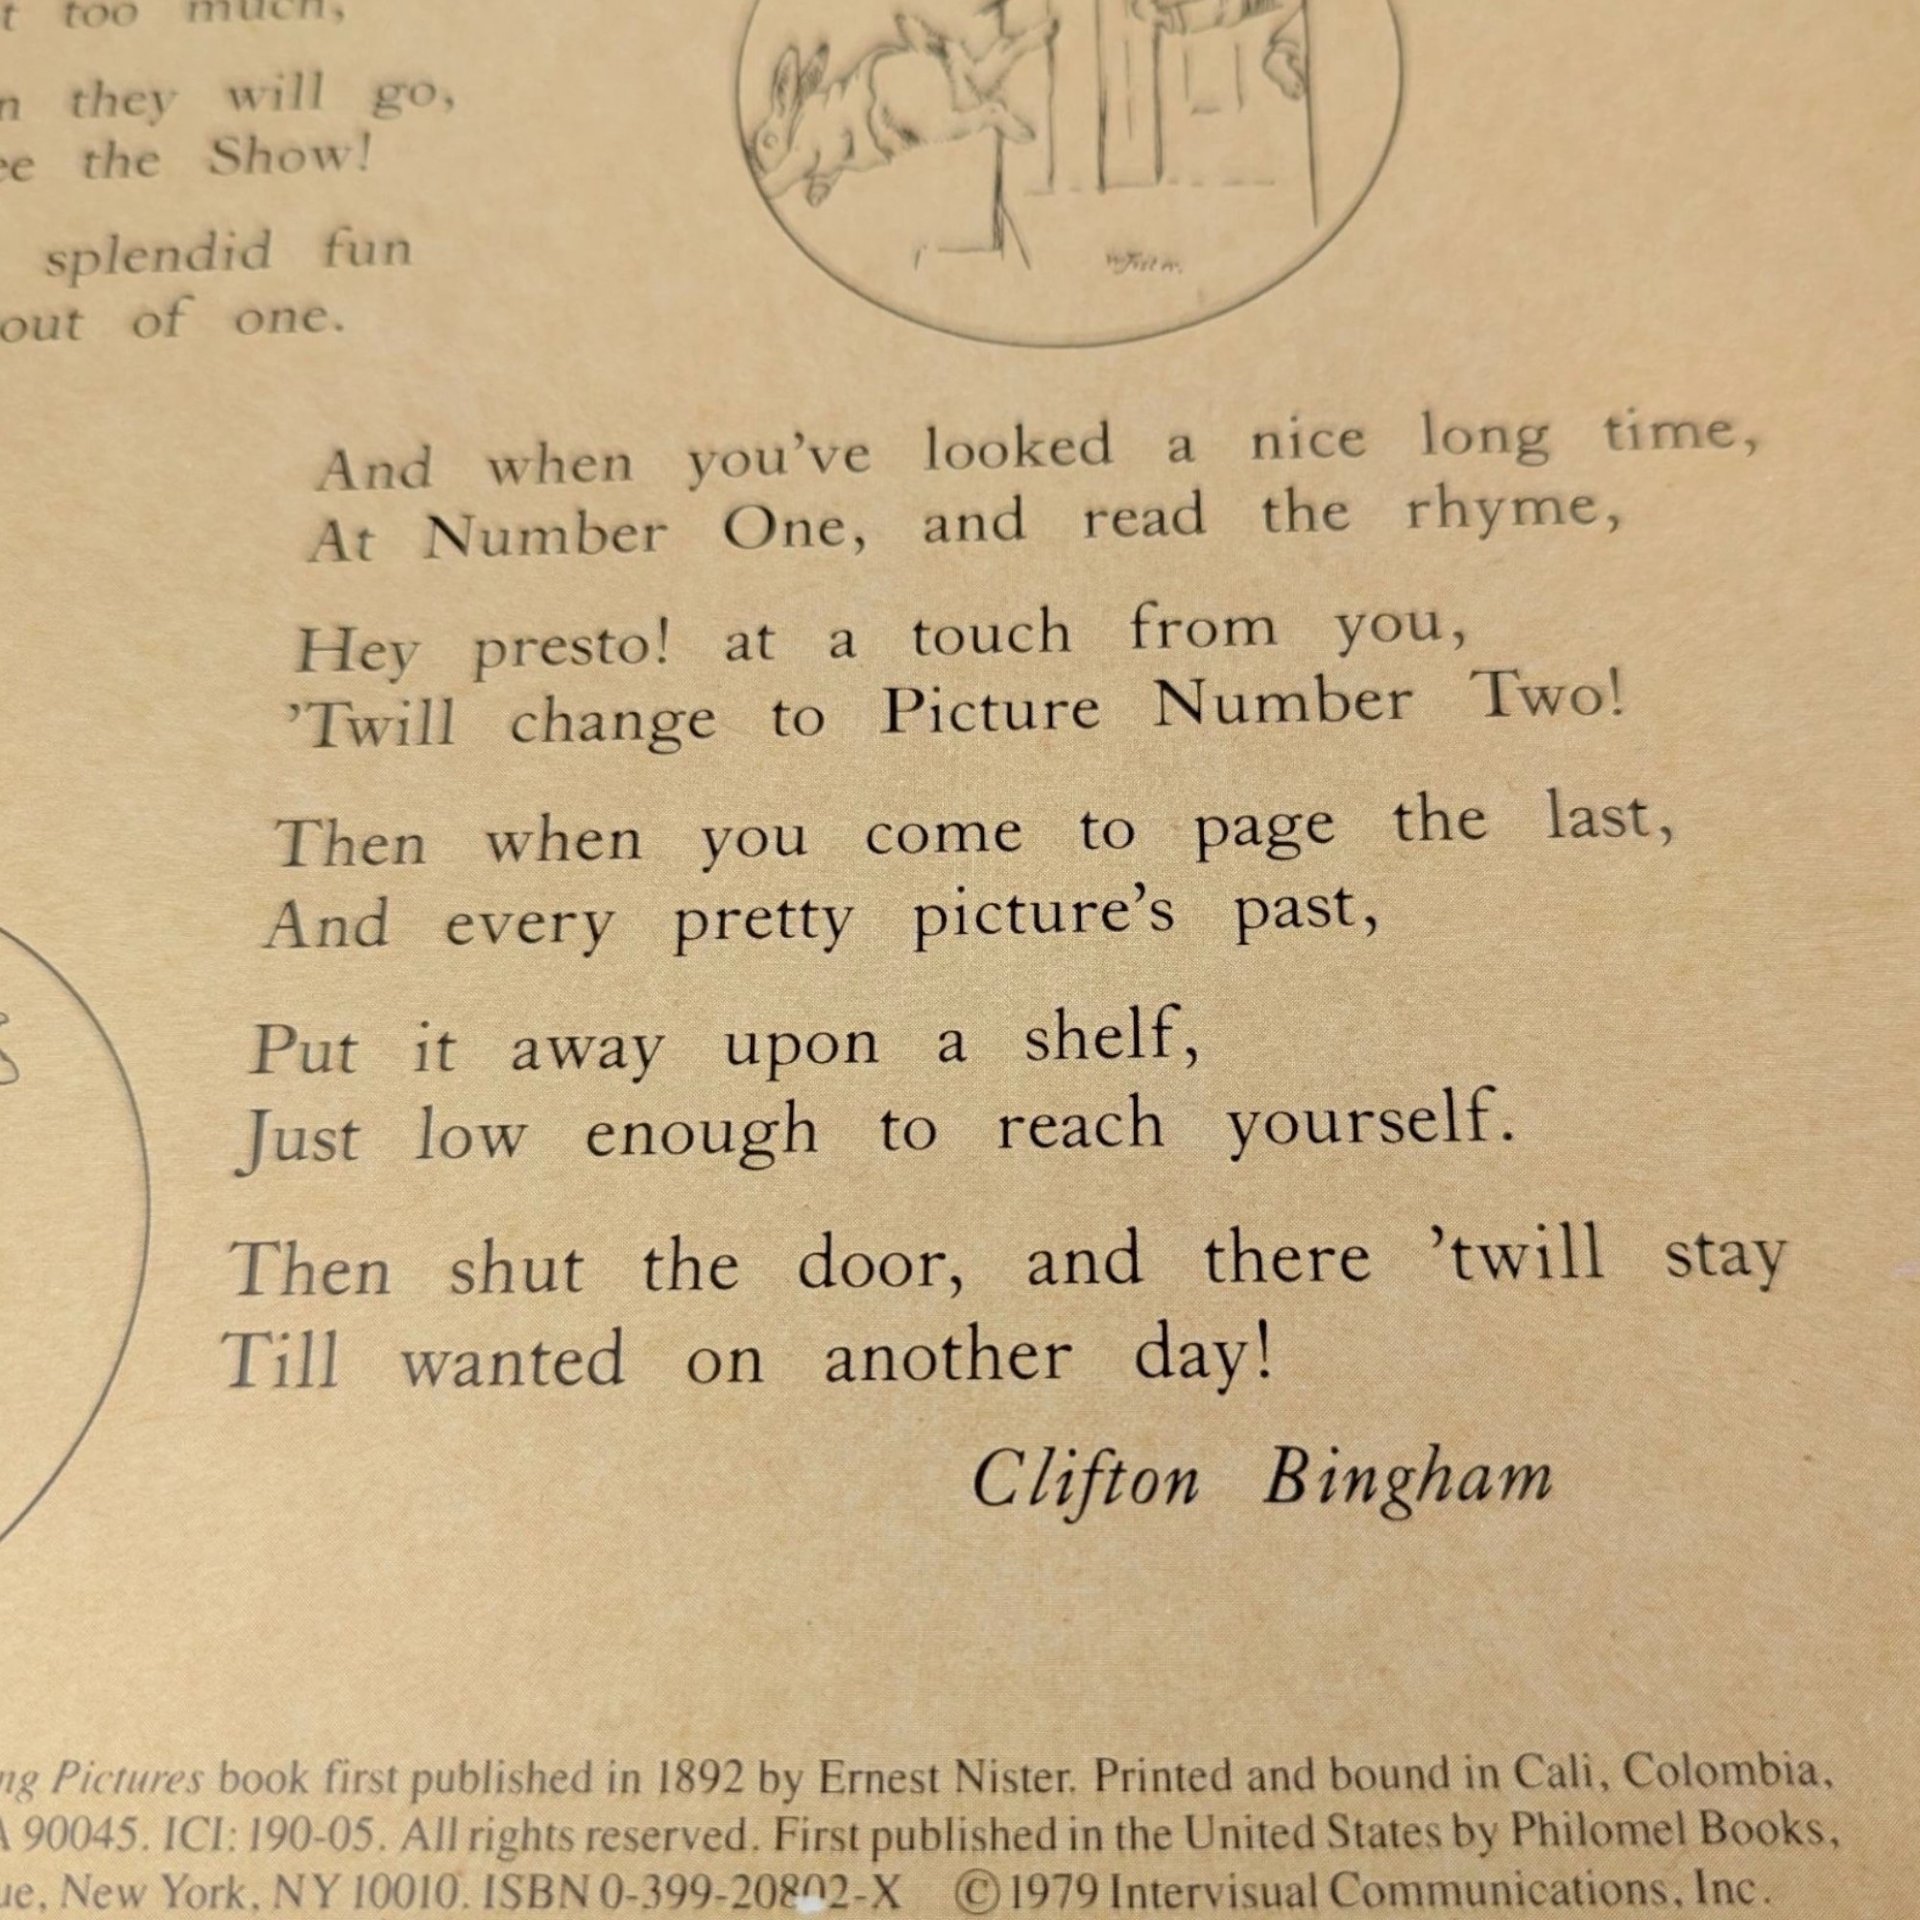 too much,
they will go,
the Show!
splendid fun
out of one.
And when you've looked a nice long time,
At Number One, and read the rhyme,
Hey presto! at a touch from you,
'Twill change to Picture Number Two!
Then when you come to page the last,
And every pretty picture's past,
Put it away upon a shelf,
Just low enough to reach yourself.
Then shut the door, and there 'twill stay
Till wanted on another day!
Clifton Bingham
Pictures book first published in 1892 by Ernest Nister. Printed and bound in Cali, Colombia,
90045. ICI: 190-05. All rights reserved. First published in the United States by Philomel Books,
New York, NY 10010. ISBN 0-399-20802-X ©1979 Intervisual Communications, Inc.